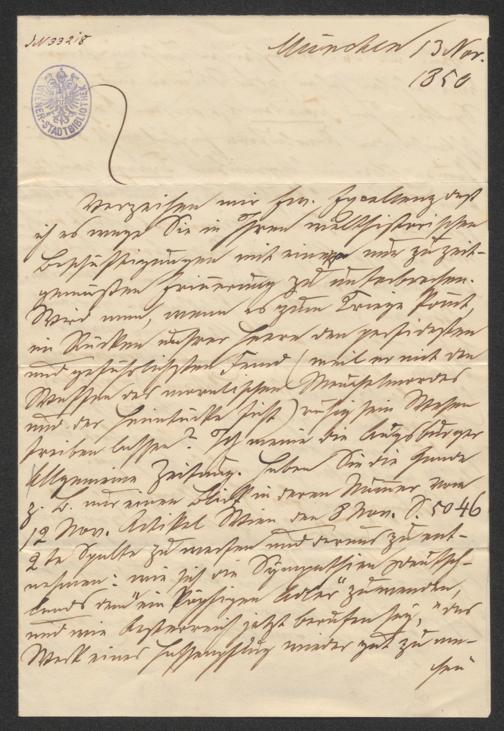 J.N 3328
WIENER-STADTBIBLIOTHEK
München 13 Nov.
1850
Verzeihen mir Ew. Excellenz daß
ich es wage Sie in Ihren welthistorischen
Beschäftigungen mit einer nur zu zeit-
gemäßen Erinnerung zu unterbrechen.
Wird man, wenn es zum Kriege kömt,
im Rücken unsrer Heere den perfidesten
und gefährlichsten Feind (weil er mit den
Waffen des moralischen Meuchelmordes
und der Heimtücke ficht) ruhig sein Wesen
treiben lassen? Ich meine die Augsburger
Allgemeine Zeitung. Haben Sie die Gnade
z. B. nur einen Blick in deren Numer vom
12 Nov. Artikel Wien den 8 Nov. S. 5046
2te Spalte zu werfen und daraus zu ent-
nehmen: wie sich die Sympathien Deutsch-
lands dem "ein köpfigen Adler" zuwenden,
und wie Oesterreich jetzt berufen sey, "das
Werk eines Hassenpflug wieder gut zu ma-
chen